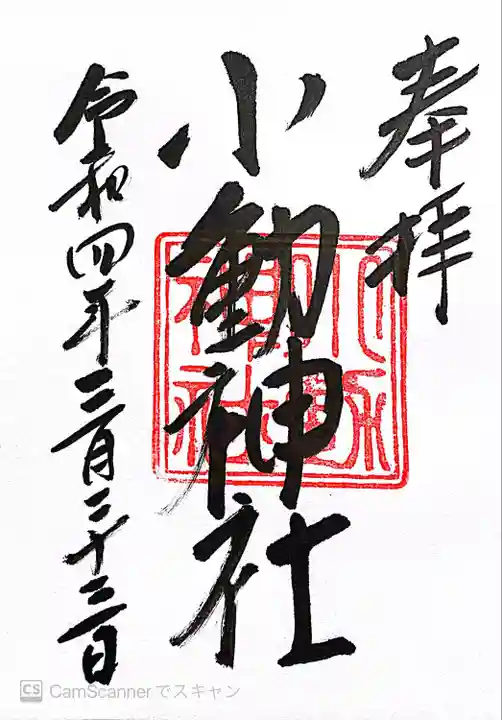 奉拝
小釼神社
令和四年三月二十三日
CS CamScannerでスキャン